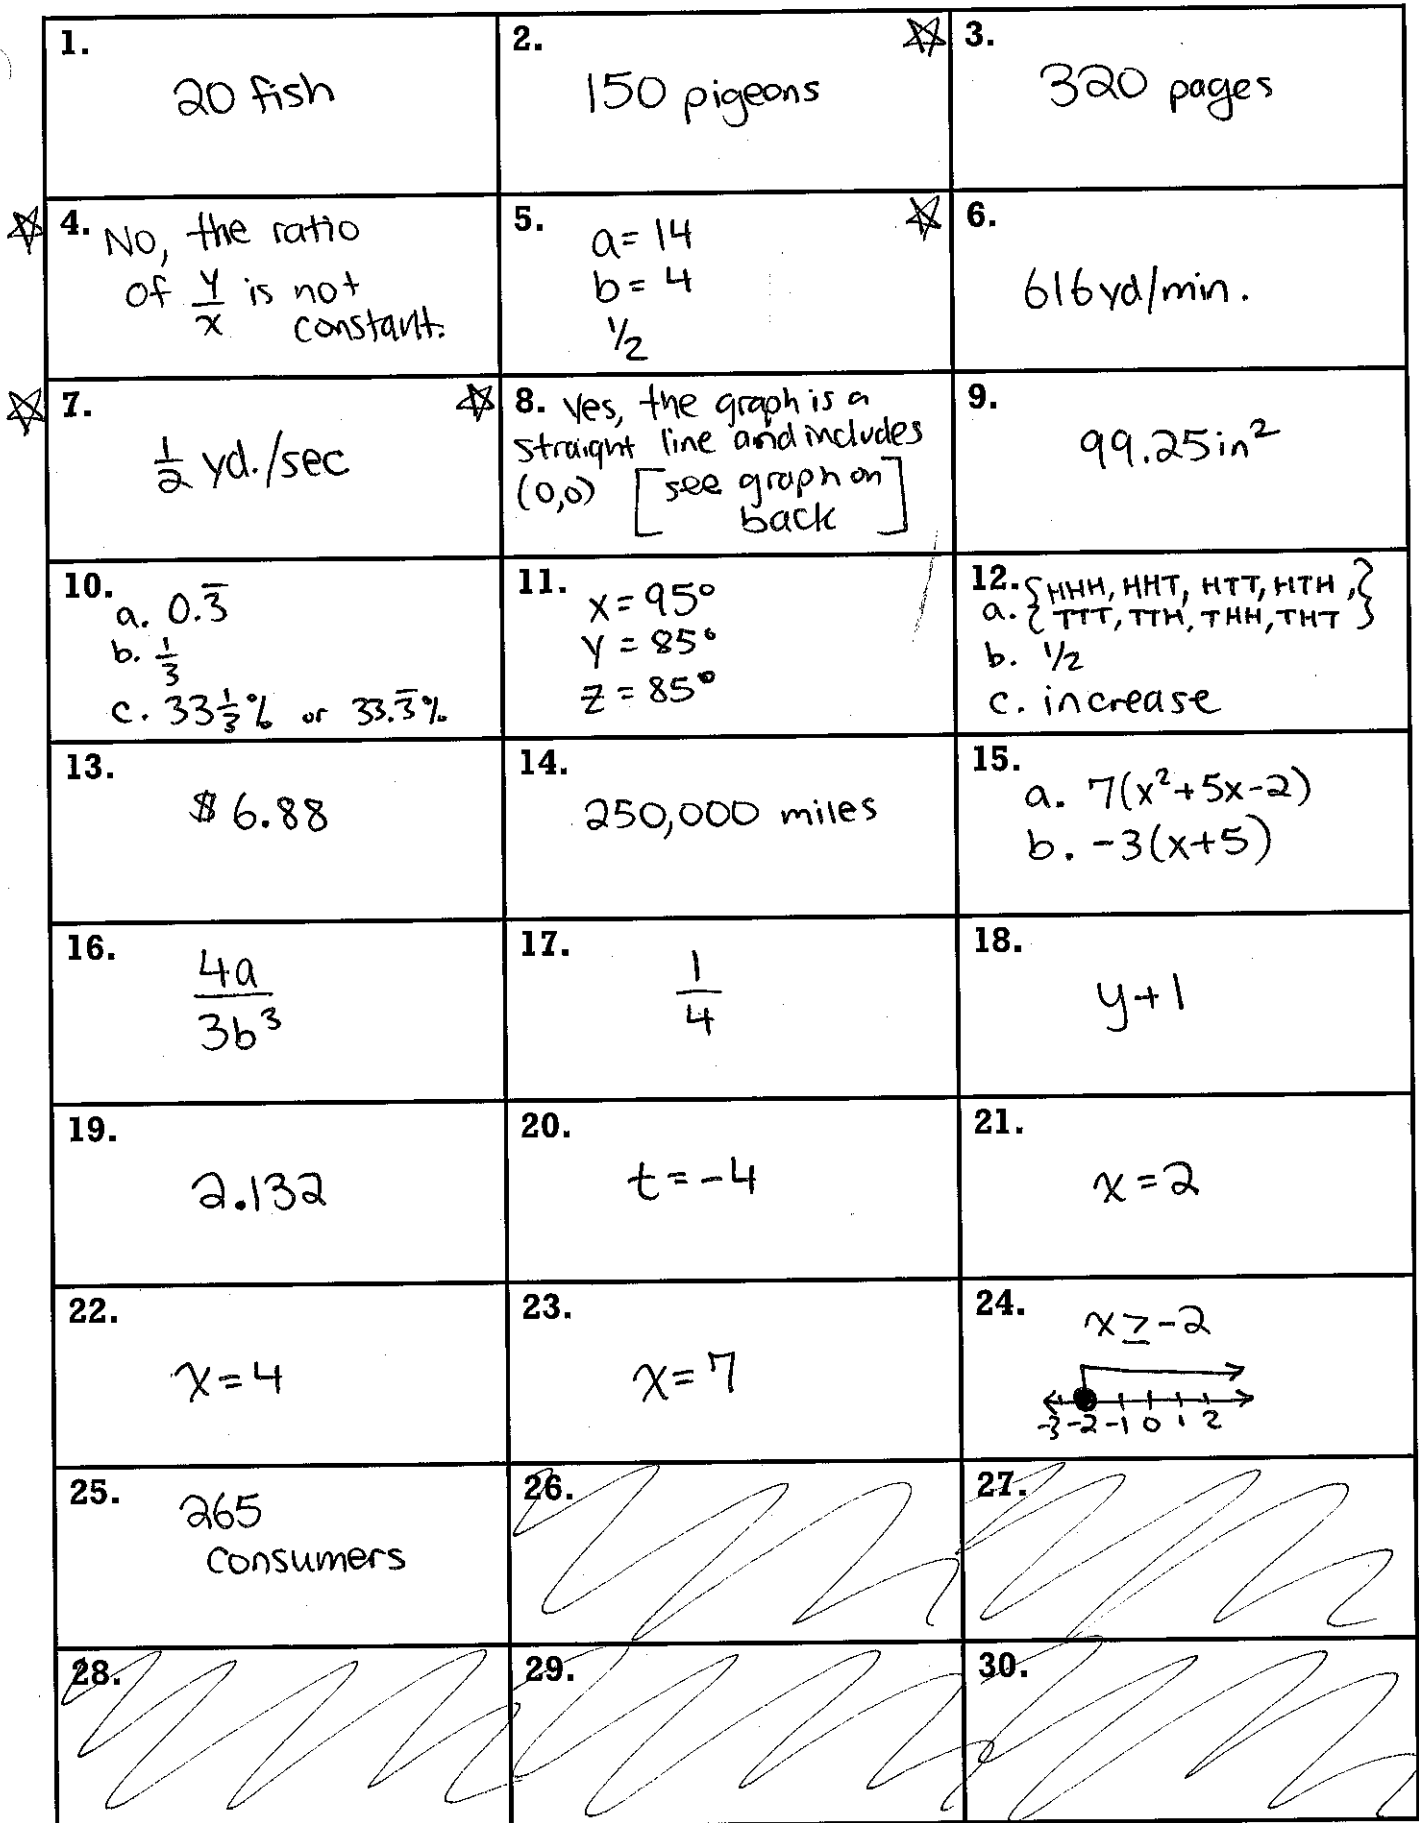 1.
20 fish
2.
150 pigeons
3.
320 pages
4. No, the ratio
of y/x is not
constant.
5.
a = 14
b = 4
1/2
6.
616 yd/min.
7.
1/2 yd./sec
8. Yes, the graph is a
straight line and includes
(0,0) [see graph on
back]
9.
99.25 in²
10.
a. 0.3̅
b. 1/3
c. 33 1/3 % or 33.3̅%
11.
x = 95°
y = 85°
z = 85°
12.
a. {HHH, HHT, HTT, HTH,
TTT, TTH, THH, THT}
b. 1/2
c. increase
13.
$6.88
14.
250,000 miles
15.
a. 7(x²+5x-2)
b. -3(x+5)
16.
4a
3b³
17.
1
4
18.
y+1
19.
2.132
20.
t = -4
21.
x = 2
22.
x = 4
23.
x = 7
24.
x ≥ -2
-3 -2 -1 0 1 2
25.
265
consumers
26.
27.
28.
29.
30.